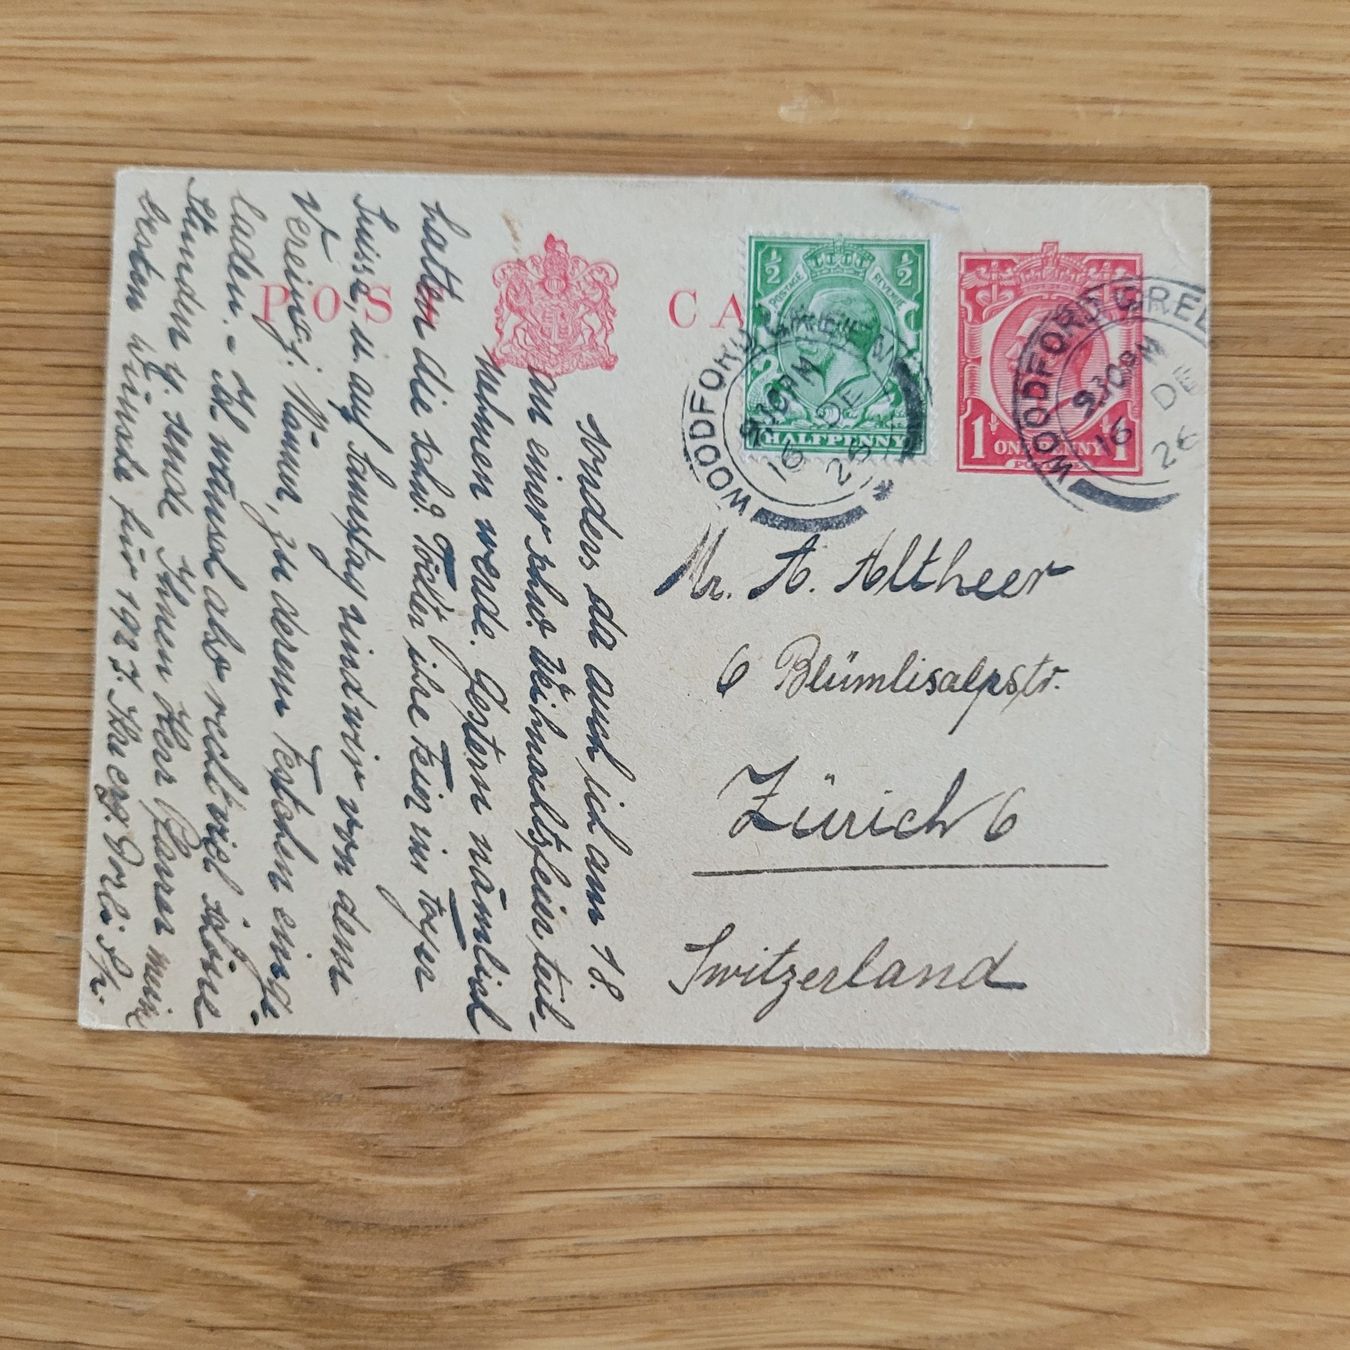 POST CARD
1/2 1/2
POSTAGE REVENUE
HALFPENNY
1 1
ONE PENNY
WOODFORD GREEN
9.30PM
16 DE
26
WOODFORD GREE
9.30PM
16 DE
26
Mr. A. Altheer
6 Blümlisalpstr.
Zürich 6
Switzerland
da auch ich am 18.
an einer schw. Weihnachtsfeier teil-
nehmen werde. Gestern nämlich
hatten die schw. ihre
Suisse, u. auf Samstag sind wir von dem
Vereinig. Männer, zu deren Festchen einge-
laden. - Ich wünsche also recht viel schöne
Stunden u. sende Ihnen Herr meine
besten Wünsche für 1927. Ihr erg.